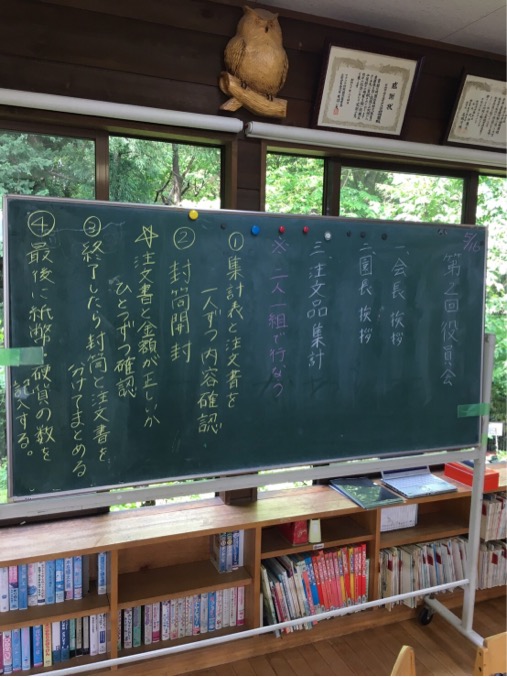 第2回役員会
一.会長挨拶
二.園長挨拶
三.注文品集計
※二人一組で行なう
①集計表と注文書を
一人ずつ内容確認.
②封筒開封
注文書と金額が正しいか
ひとつずつ確認
③終了したら封筒と注文書を
分けてまとめる
④最後に紙幣・硬貨の数を
記入する。
感謝状